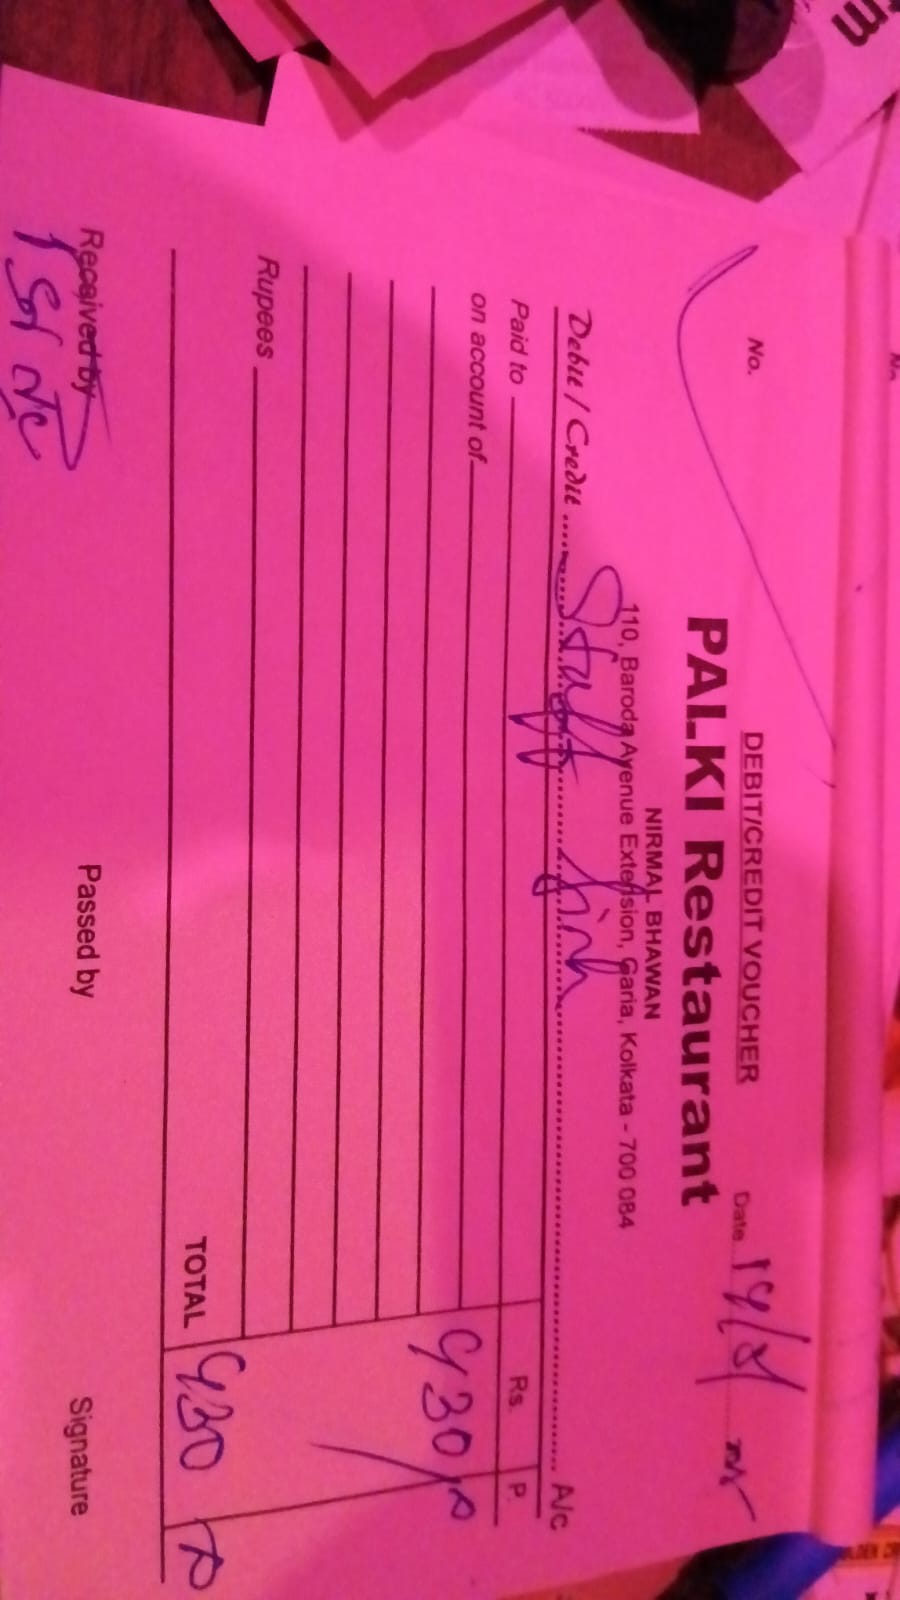 DEBIT/CREDIT VOUCHER
No.
Date
PALKI Restaurant
NIRMAL BHAWAN
110, Baroda Avenue Extension, Garia, Kolkata - 700 084
Debit / Credit Staff fish A/c
Paid to Rs. P.
on account of 430/-
Rupees
TOTAL 430
Received by Passed by Signature